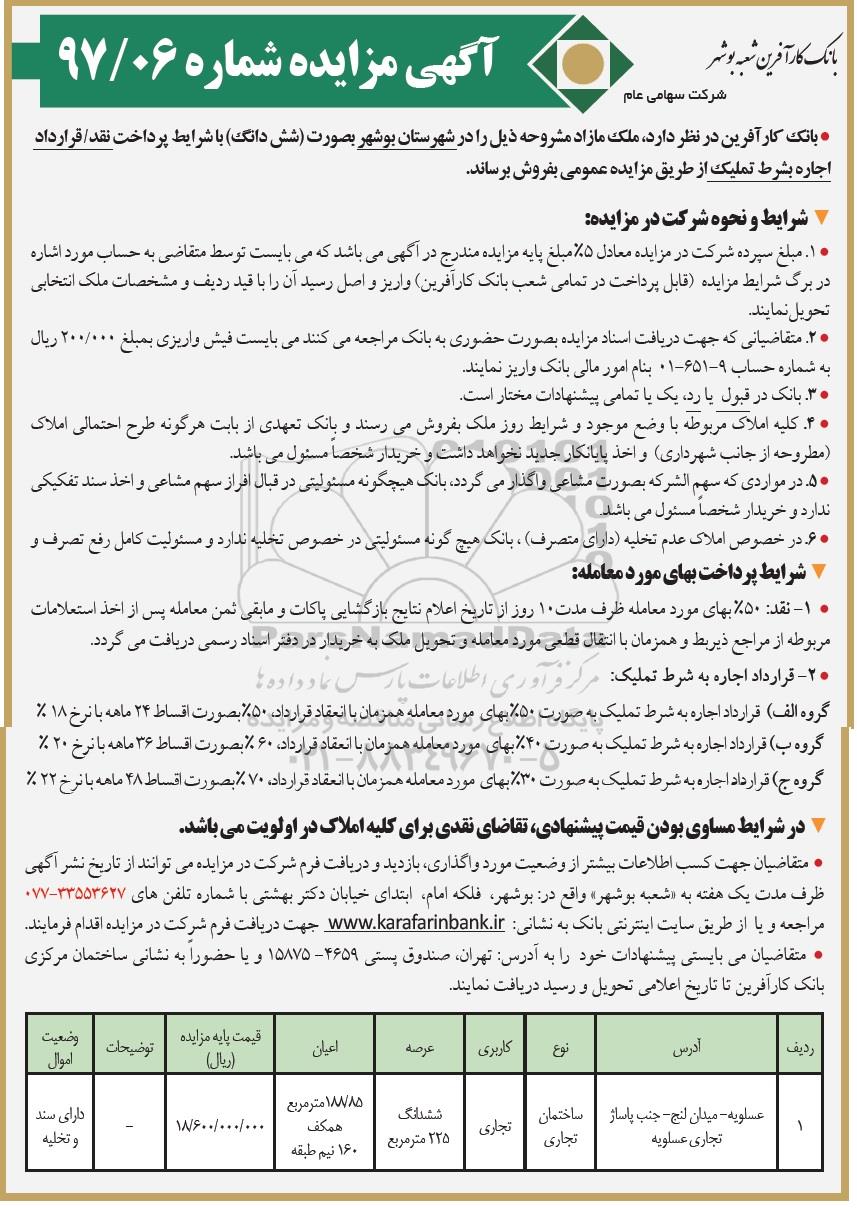 بانک کارآفرین شعبه بوشهر
شرکت سهامی عام
آگهی مزایده شماره ۹۷/۰۶
● بانک کارآفرین در نظر دارد، ملک مازاد مشروحه ذیل را در شهرستان بوشهر بصورت (شش دانگ) با شرایط پرداخت نقد/ قرارداد
اجاره بشرط تملیک از طریق مزایده عمومی بفروش برساند.
▼ شرایط و نحوه شرکت در مزایده:
● ۱. مبلغ سپرده شرکت در مزایده معادل ۵٪ مبلغ پایه مزایده مندرج در آگهی می باشد که می بایست توسط متقاضی به حساب مورد اشاره
در برگ شرایط مزایده (قابل پرداخت در تمامی شعب بانک کارآفرین) واریز و اصل رسید آن را با قید ردیف و مشخصات ملک انتخابی
تحویل نمایند.
● ۲. متقاضیانی که جهت دریافت اسناد مزایده بصورت حضوری به بانک مراجعه می کنند می بایست فیش واریزی بمبلغ ۲۰۰/۰۰۰ ریال
به شماره حساب ۹-۶۵۱-۰۱ بنام امور مالی بانک واریز نمایند.
● ۳. بانک در قبول یا رد، یک یا تمامی پیشنهادات مختار است.
● ۴. کلیه املاک مربوطه با وضع موجود و شرایط روز ملک بفروش می رسند و بانک تعهدی از بابت هرگونه طرح احتمالی املاک
(مطروحه از جانب شهرداری) و اخذ پایانکار جدید نخواهد داشت و خریدار شخصاً مسئول می باشد.
● ۵. در مواردی که سهم الشرکه بصورت مشاعی واگذار می گردد، بانک هیچگونه مسئولیتی در قبال افراز سهم مشاعی و اخذ سند تفکیکی
ندارد و خریدار شخصاً مسئول می باشد.
● ۶. در خصوص املاک عدم تخلیه (دارای متصرف) ، بانک هیچ گونه مسئولیتی در خصوص تخلیه ندارد و مسئولیت کامل رفع تصرف و
▼ شرایط پرداخت بهای مورد معامله:
● ۱- نقد: ۵۰٪ بهای مورد معامله ظرف مدت۱۰ روز از تاریخ اعلام نتایج بازگشایی پاکات و مابقی ثمن معامله پس از اخذ استعلامات
مربوطه از مراجع ذیربط و همزمان با انتقال قطعی مورد معامله و تحویل ملک به خریدار در دفتر اسناد رسمی دریافت می گردد.
ParsNamadData
● ۲- قرارداد اجاره به شرط تملیک:
مرکز فرآوری اطلاعات پارس نماد داده ها
گروه الف) قرارداد اجاره به شرط تملیک به صورت ۵۰٪ بهای مورد معامله همزمان با انعقاد قرارداد، ۵۰٪ بصورت اقساط ۲۴ ماهه با نرخ ۱۸ ٪
پایگاه اطلاع رسانی مناقصه و مزایده
گروه ب) قرارداد اجاره به شرط تملیک به صورت ۴۰٪ بهای مورد معامله همزمان با انعقاد قرارداد، ۶۰ ٪ بصورت اقساط ۳۶ ماهه با نرخ ۲۰ ٪
۰۲۱-۸۸۳۴۹۶۷۰-۵
گروه ج) قرارداد اجاره به شرط تملیک به صورت ۳۰٪ بهای مورد معامله همزمان با انعقاد قرارداد، ۷۰ ٪ بصورت اقساط ۴۸ ماهه با نرخ ۲۲ ٪
▼ در شرایط مساوی بودن قیمت پیشنهادی، تقاضای نقدی برای کلیه املاک در اولویت می باشد.
● متقاضیان جهت کسب اطلاعات بیشتر از وضعیت مورد واگذاری، بازدید و دریافت فرم شرکت در مزایده می توانند از تاریخ نشر آگهی
ظرف مدت یک هفته به «شعبه بوشهر» واقع در: بوشهر، فلکه امام، ابتدای خیابان دکتر بهشتی با شماره تلفن های ۳۳۵۵۳۶۲۷-۰۷۷
مراجعه و یا از طریق سایت اینترنتی بانک به نشانی: www.karafarinbank.ir جهت دریافت فرم شرکت در مزایده اقدام فرمایند.
● متقاضیان می بایستی پیشنهادات خود را به آدرس: تهران، صندوق پستی ۴۶۵۹- ۱۵۸۷۵ و یا حضوراً به نشانی ساختمان مرکزی
بانک کارآفرین تا تاریخ اعلامی تحویل و رسید دریافت نمایند.
ردیف آدرس نوع کاربری عرصه اعیان قیمت پایه مزایده (ریال) توضیحات وضعیت اموال
۱ عسلویه- میدان لنج- جنب پاساژ تجاری عسلویه ساختمان تجاری تجاری ششدانگ ۲۲۵ مترمربع ۱۸۸/۸۵مترمربع همکف ۱۶۰ نیم طبقه ۱۸/۶۰۰/۰۰۰/۰۰۰ - دارای سند و تخلیه